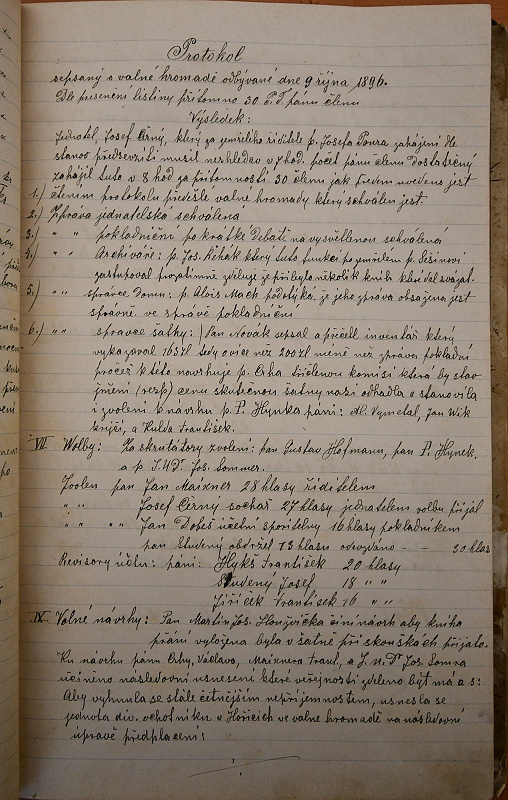 Protokol
sepsaný o valné hromadě odbývané dne 9 října 1896.
Dle presenční listiny přítomno 30 P.T. pánu členu
Výsledek:
Jednatel, Josef Černý, který za zemřelého řiditele p. Josefa zahájení dle
stanov předsevzíti musil neshledav v 7 hod. počet pánu členu dostatečný
zahájil tuto v 8 hod za přítomnosti 30 členu jak předem uvedeno jest
1.) čtením protokolu předešlé valné hromady který schválen jest.
2.) Zpráva jednatelská schválena
3.) " " pokladniční po krátké debatě na vysvětlenou schválená
4.) " " Archiváře: p. Jos. Řehák který tuto funkci po zemřelém p.
zastupoval prozatímně, přibylo několik knih které dal svázat.
5.) " " správce domu: p. Alois Mach podotýká, že jeho zpráva obsažena jest
správně ve správě pokladniční
6.) " " spravce šatny:) Pan Novák sepsal a přečetl inventář který
vykazoval 163 zl tedy o více než 200 zl méně než zpráva pokladní
pročež k této navrhuje p. Crha tříčlenou komisi která by stav
jmění (resp) cenu skutečnou šatny naší odhadla a stanovila
i zvoleni k návrhu p. P. Hynka páni: Al. Vymetal, Jan Wik
a Kulda František.
VII Wolby: Za skrutátory zvoleni: pan Gustav Hofmann, pan P. Hynek,
a p J.U.Dr. Jos. Sommer.
Zvolen pan Jan Maixner 28 hlasy řiditelem
" " Josef Černý sochař 27 hlasy jednatelem volbu přijal
" " " " Jan Dobeš účetní spořitelny 16 hlasy pokladníkem
pan Studený obdržel 13 hlasu odevzdáno - - 30 hlas
Revisory účtu: páni: Hykš František 20 hlasy
Studený Josef 18 " "
Jiřiček František 16 " "
IX Volné návrhy: Pan Martin Jos. činí návrh aby kniha
přání vyložena byla v šatně při skouškách přijato.
Ku návrhu pánu Crhy, Václava, Maixnera Frant, a J.u.Dr Jos. Somra
učiněno následovní usnesení které veřejnosti zdeleno býti má a s:
Aby vyhnula se stále četnějším nepříjemnostem, usnesla se
jednota div. ochotníku v Hořicích ve valné hromadě na následovní
úpravě předplacení: